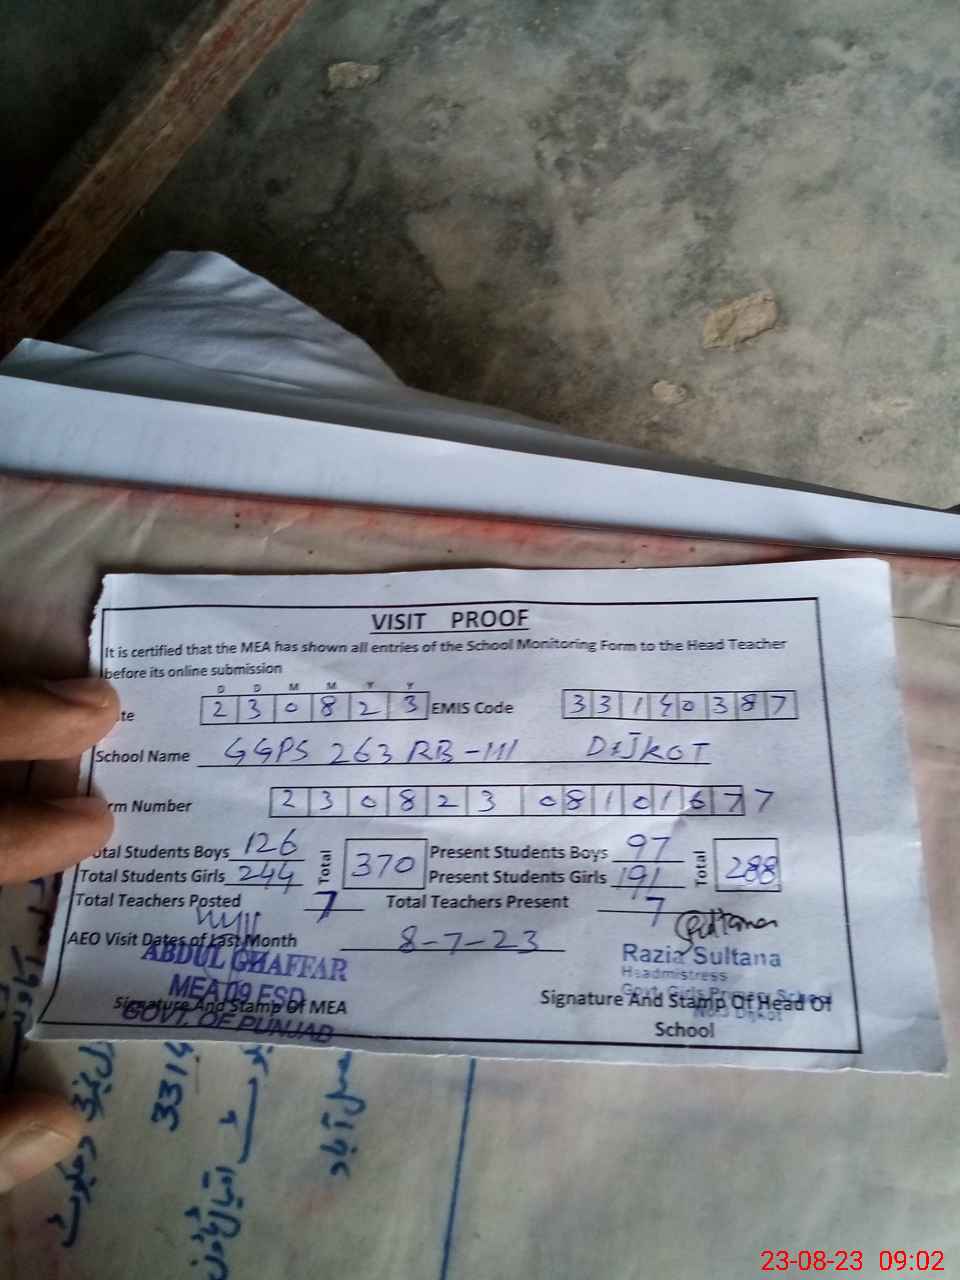 VISIT PROOF
It is certified that the MEA has shown all entries of the School Monitoring Form to the Head Teacher
before its online submission
D D M M Y Y
te 2 3 0 8 2 3 EMIS Code 3 3 1 4 0 3 8 7
School Name GGPS 263 RB-III DIJKOT
rm Number 2 3 0 8 2 3 0 8 1 0 1 6 7 7
otal Students Boys 126 Total 370 Present Students Boys 97 Total 288
Total Students Girls 244 Present Students Girls 191
Total Teachers Posted 7 Total Teachers Present 7
AEO Visit Dates of Last Month 8-7-23
ABDUL GHAFFAR
MEA 09 FSD
GOVT. OF PUNJAB
Signature And Stamp Of MEA
Razia Sultana
Headmistress
Govt. Girls Primary School
No.3 Dijkot
Signature And Stamp Of Head Of
School
3314
23-08-23 09:02